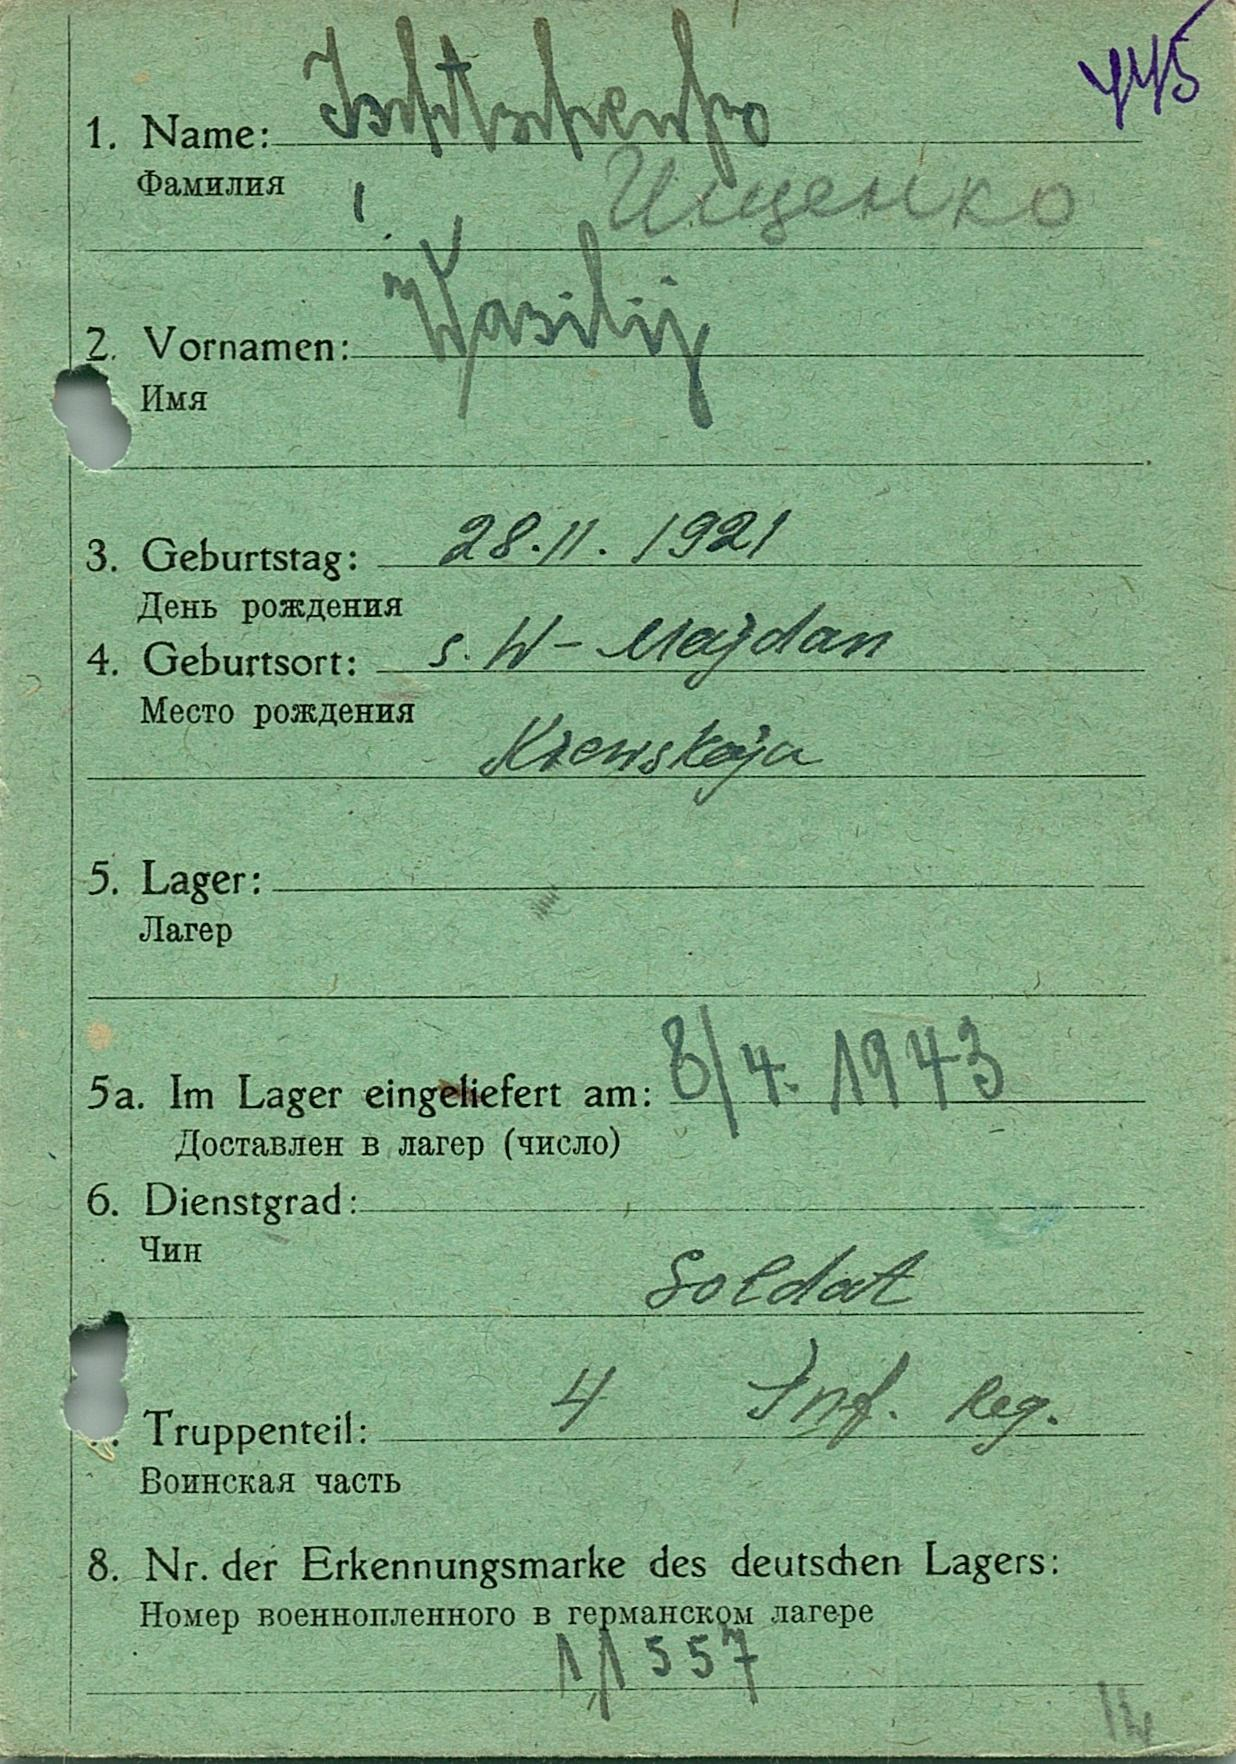 445
1. Name: Ischtschenko
Фамилия
Ищенко
2. Vornamen: Wasilij
Имя
3. Geburtstag: 28.11.1921
День рождения
4. Geburtsort: s. W-Majdan
Место рождения
Kiewskaja
5. Lager:
Лагер
5a. Im Lager eingeliefert am: 8/4. 1943
Доставлен в лагер (число)
6. Dienstgrad:
Чин
Soldat
Truppenteil: 4 Inf. Reg.
Воинская часть
8. Nr. der Erkennungsmarke des deutschen Lagers:
Номер военнопленного в германском лагере
11557
14